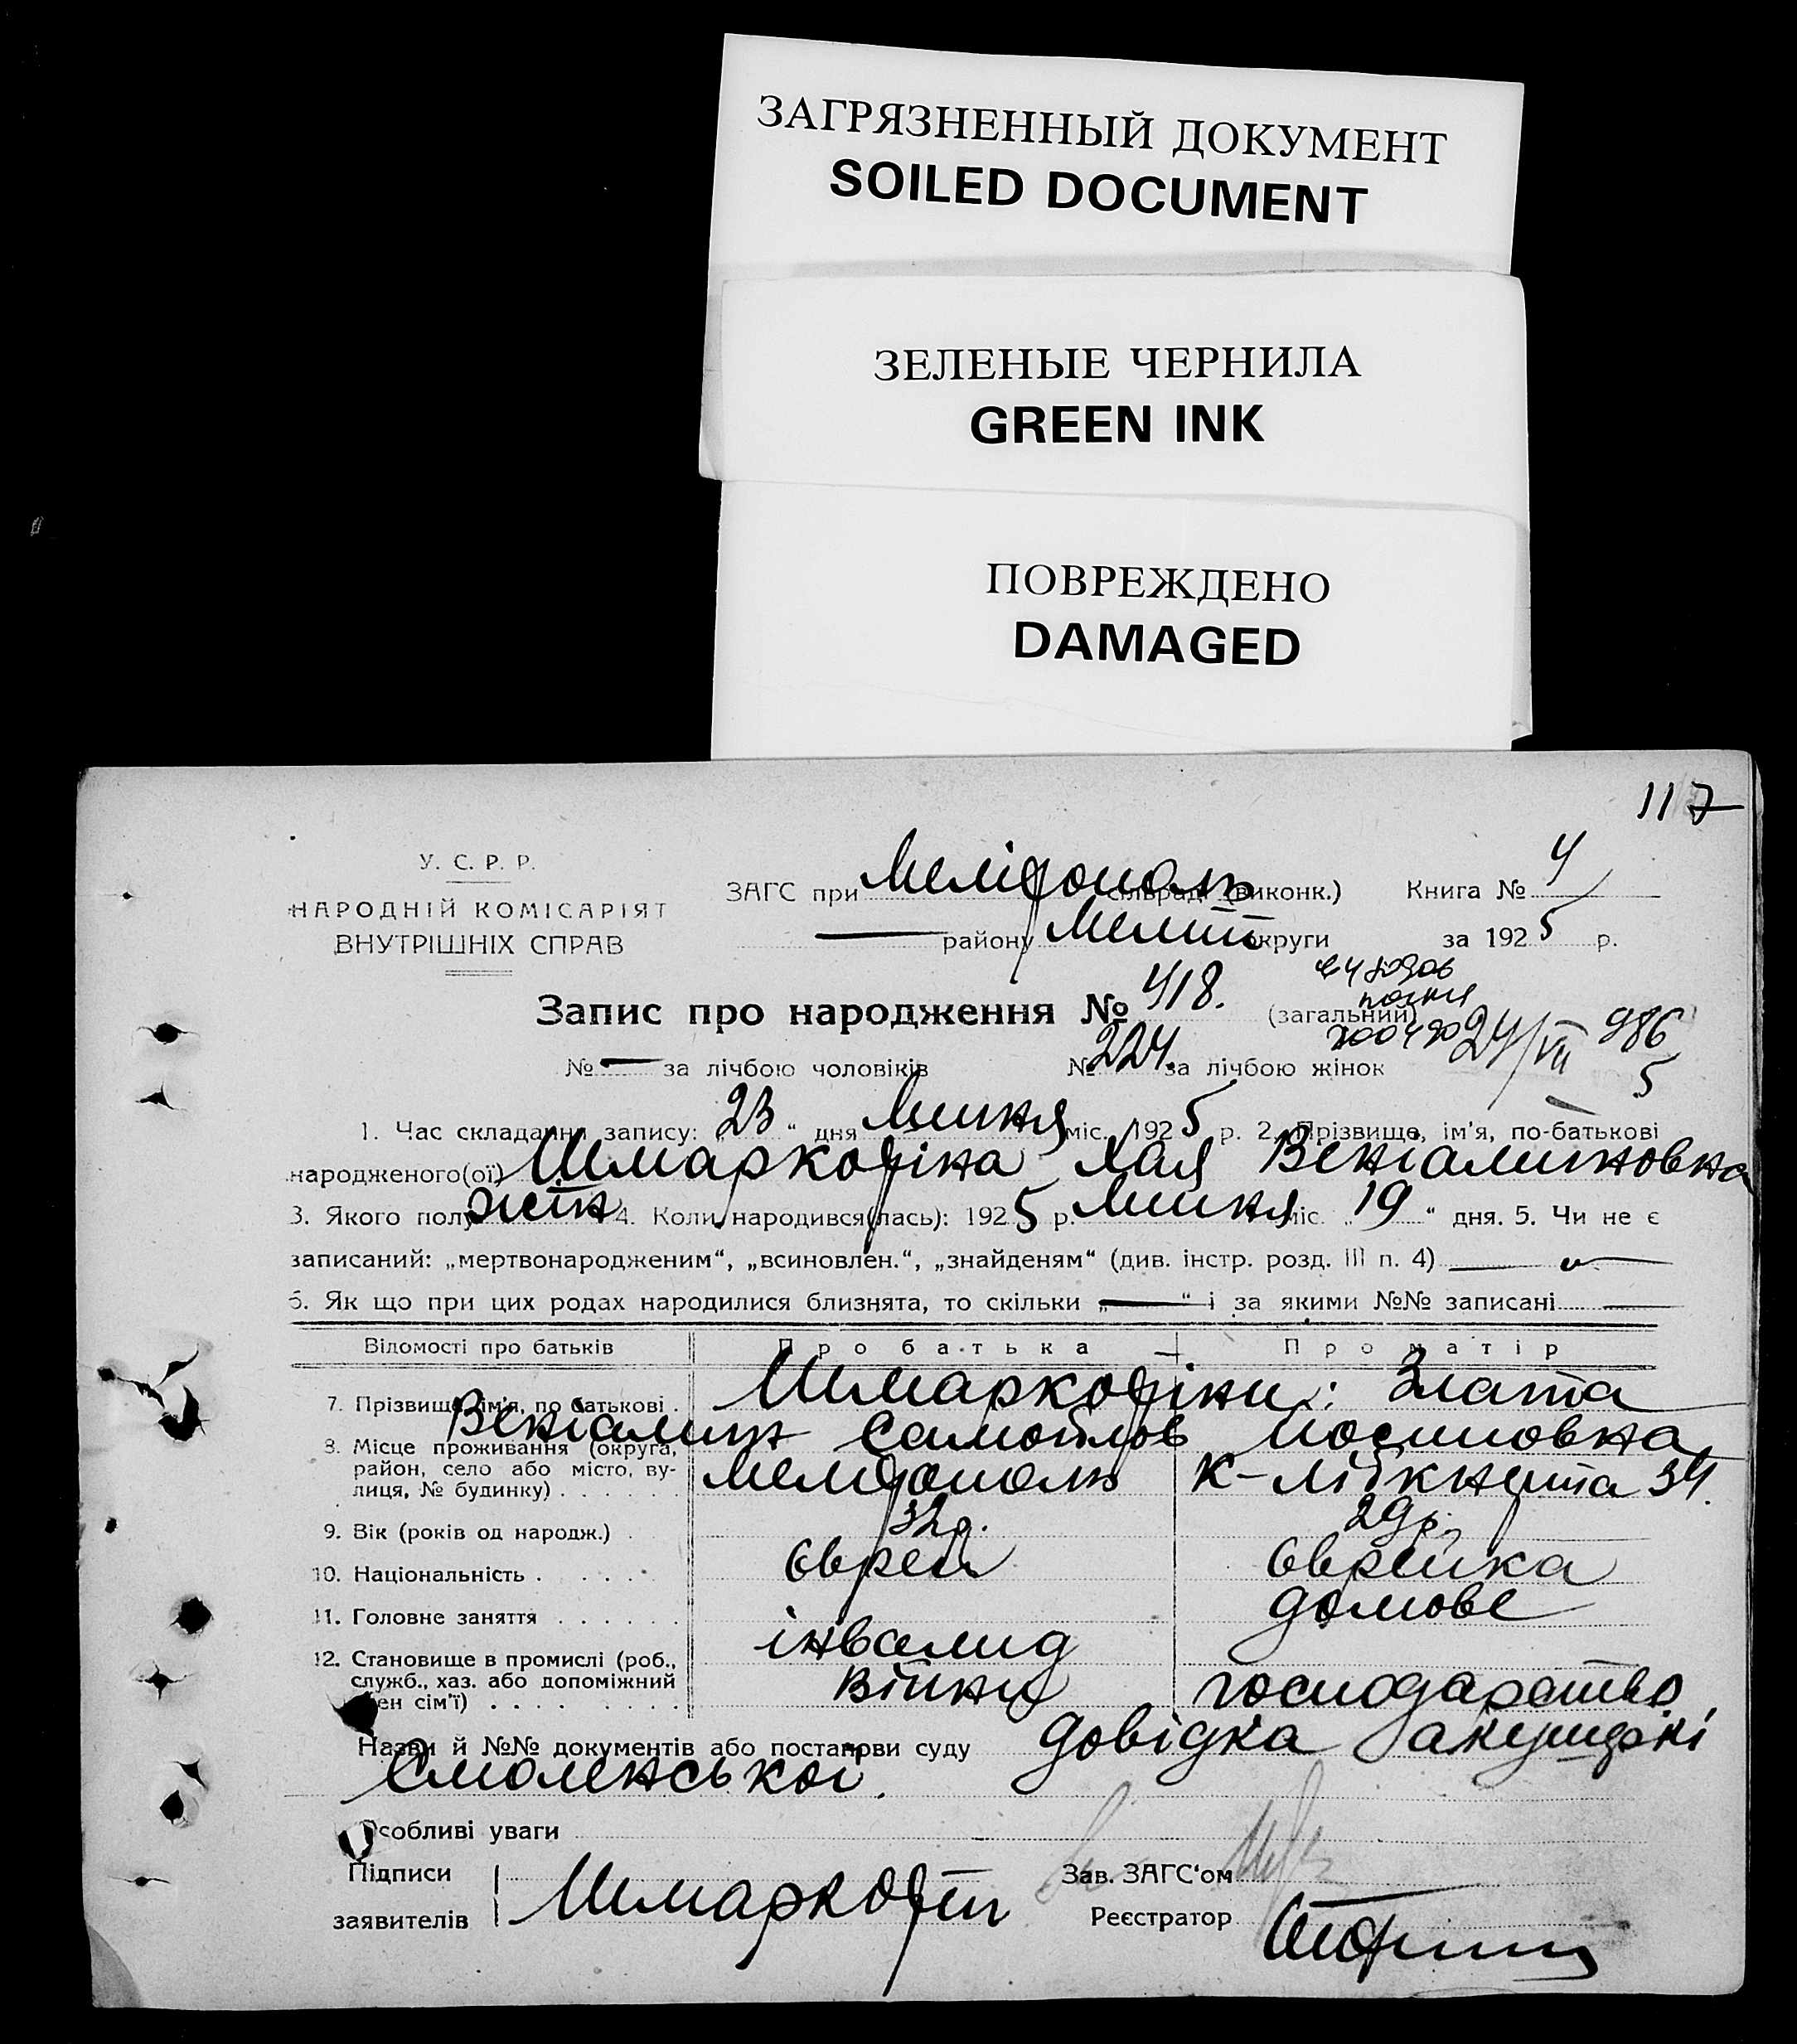 ЗАГРЯЗНЕННЫЙ ДОКУМЕНТ
SOILED DOCUMENT
ЗЕЛЕНЫЕ ЧЕРНИЛА
GREEN INK
ПОВРЕЖДЕНО
DAMAGED
117
У. С. Р. Р.
НАРОДНІЙ КОМІСАРІЯТ
ВНУТРІШНІХ СПРАВ
ЗАГС при Меліфополь сільраді (виконк.) Книга № 4
— району Меліт округи за 1925 р.
Запис про народження № 418. (загальний)
24/VII 986
5
№ — за лічбою чоловіків № 224. за лічбою жінок
1. Час складання запису: „23“ дня Липня міс. 1925 р. 2. Прізвище, ім'я, по-батькові
народженого(ої) Шмаркофіна Хая Веніаминовна
3. Якого полу жін 4. Коли народився(лась): 1925 р. Липня міс. „19“ дня. 5. Чи не є
записаний: „мертвонародженим“, „всиновлен.“, „знайденям“ (див. інстр. розд. III п. 4) —
6. Як що при цих родах народилися близнята, то скільки „—“ і за якими №№ записані —
Відомості про батьків Про батька Про матір
7. Прізвище, ім'я, по батькові . Шмаркофіни: Злата
Веніамин Самойлов Йосиповна
8. Місце проживання (округа,
район, село або місто, ву-
лиця, № будинку) . . . . . . Меліфополь К-Лібкнехта 34.
9. Вік (років од народж.) . 32р. 29р.
10. Національність . . . . . Єврей Єврейка
11. Головне заняття . . . . . . інвалид домове
12. Становище в промислі (роб.,
служб., хаз. або допоміжний
член сім'ї) . . . . . . . . Війни господарство
Назви й №№ документів або постанови суду довідка акушерки
Смоленської.
Особливі уваги
Підписи
заявителів Шмаркофін
Зав. ЗАГС'ом
Реєстратор